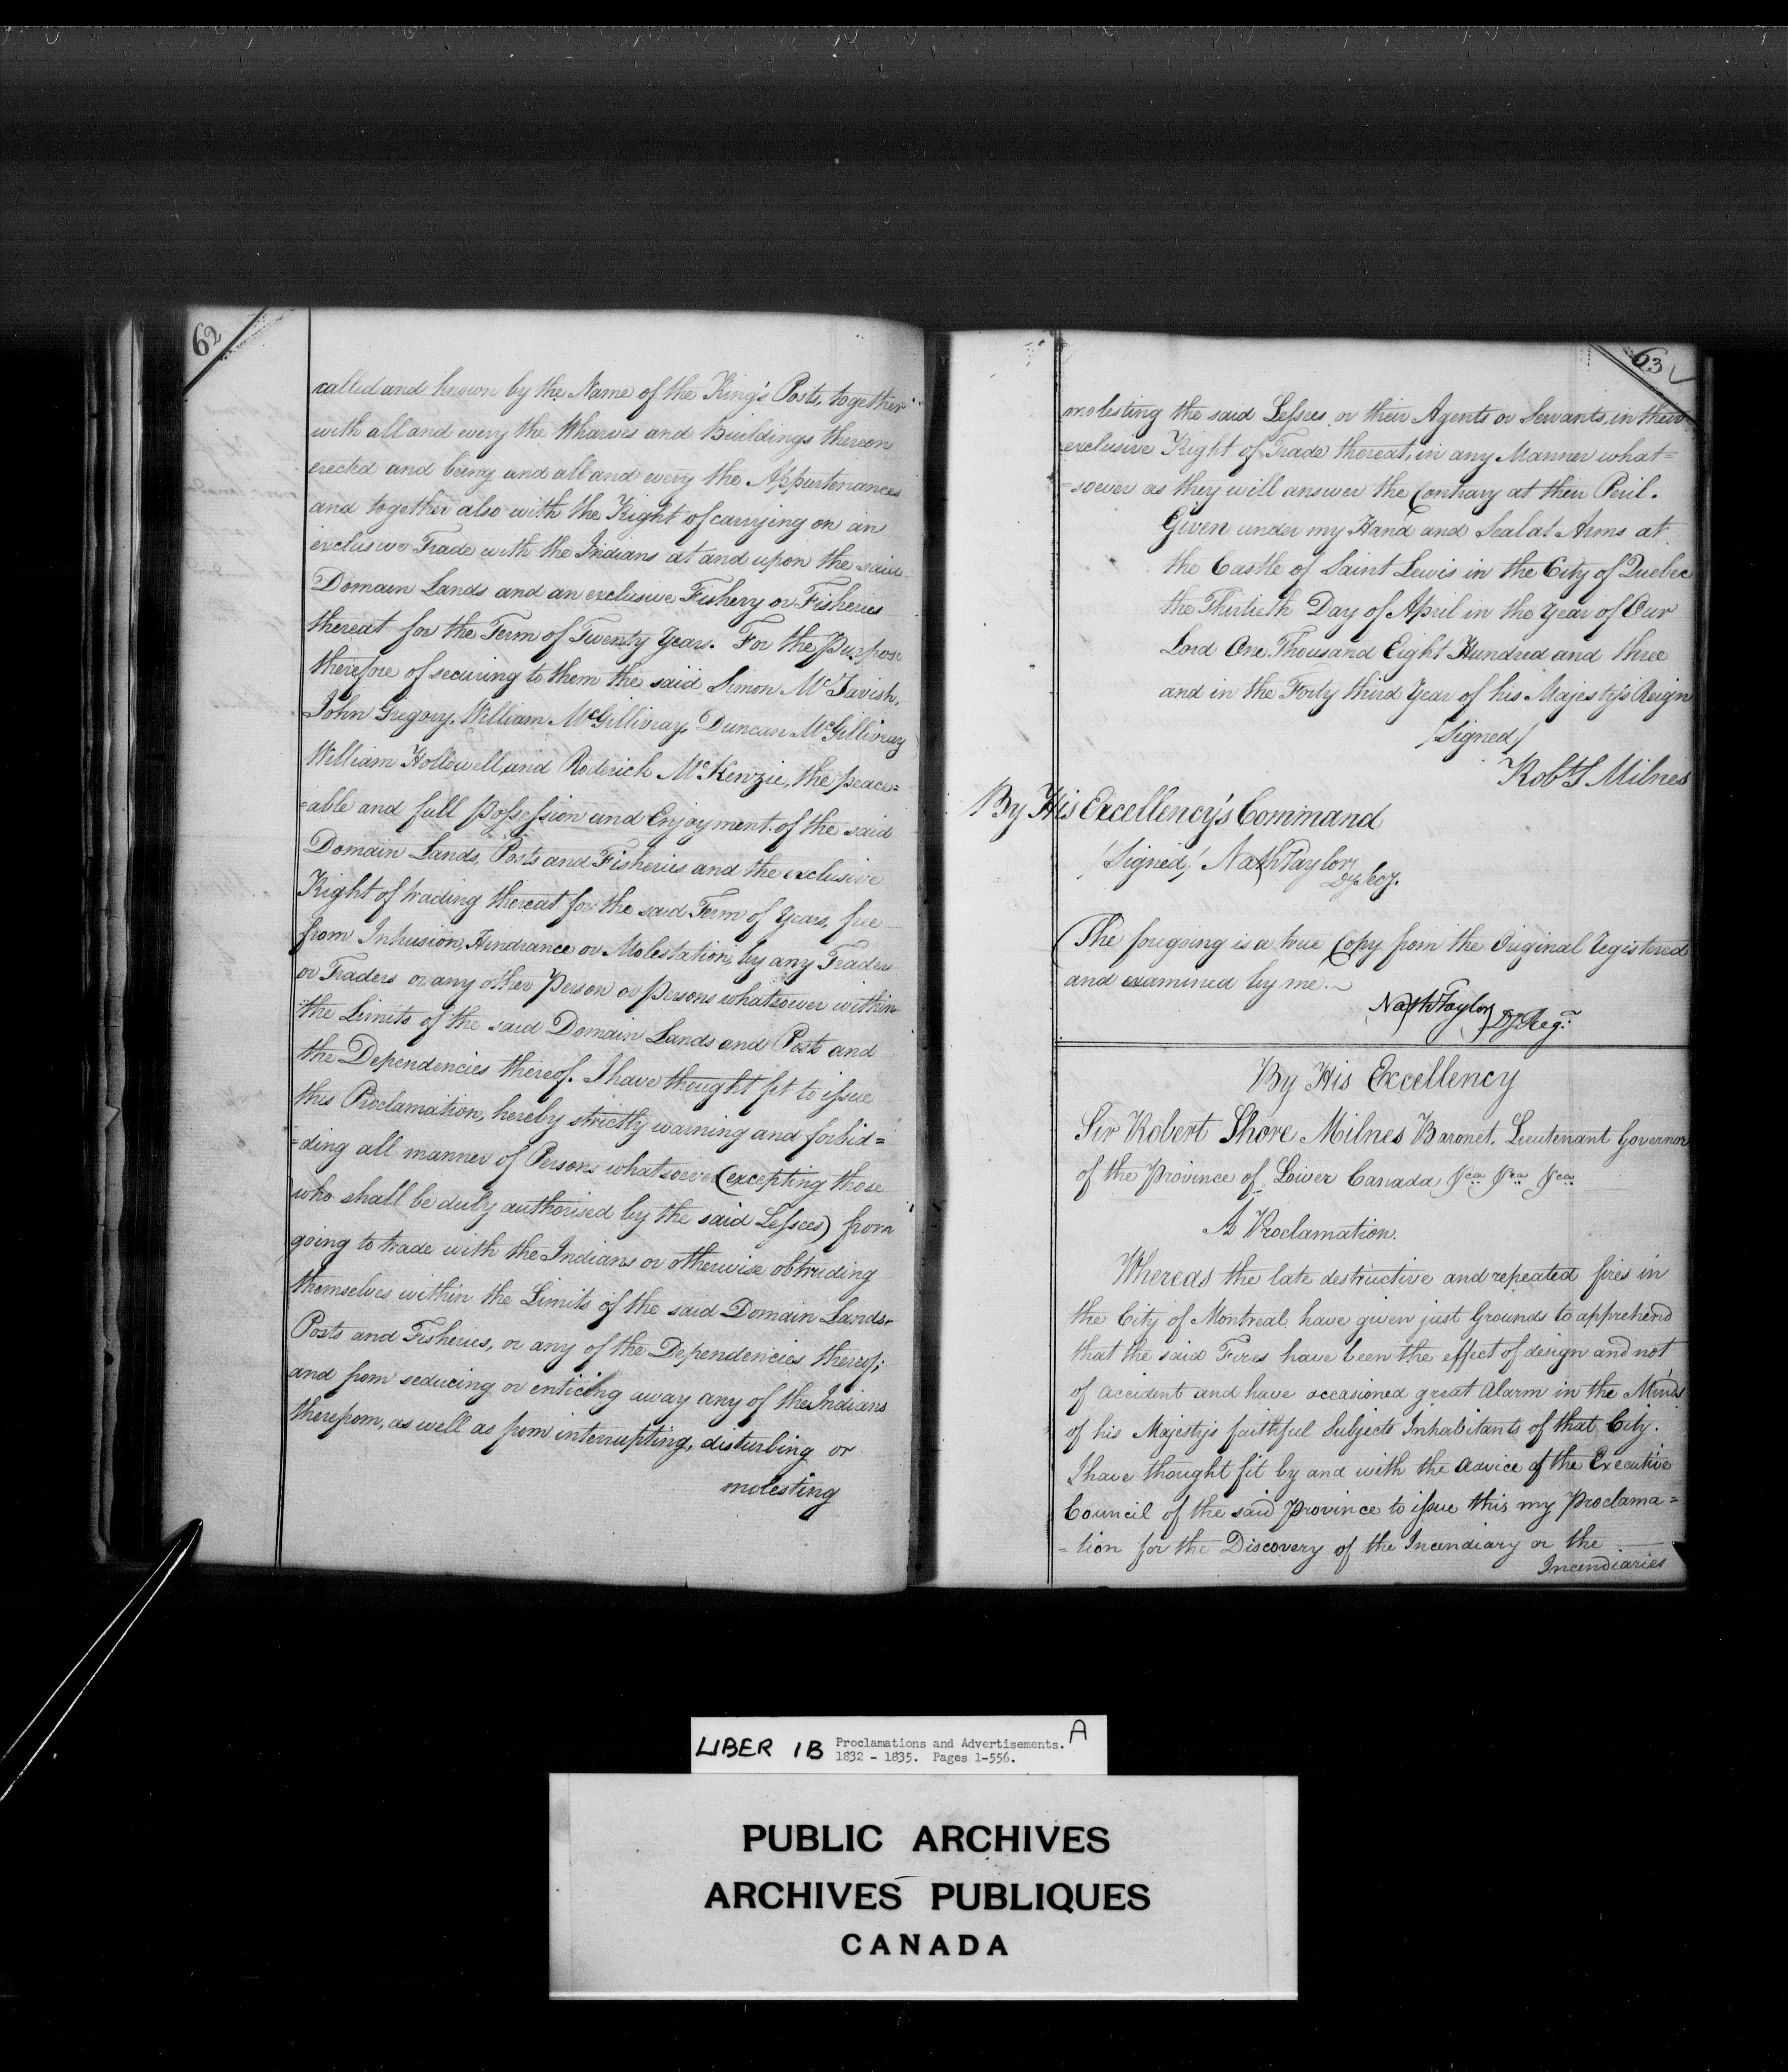 62
called and known by the Name of the King's Posts, together
with all and every the Wharves and Buildings thereon
erected and being and all and every the Appurtenances
and together also with the Right of carrying on an
exclusive Trade with the Indians at and upon the said
Domain Lands and an exclusive Fishery or Fisheries
thereat for the Term of Twenty Years. For the Purpose
therefore of securing to them the said Simon McTavish,
John Gregory, William McGillivray, Duncan McGillivray
William Hollowell, and Roderick McKenzie, the peace=
=able and full Possession and Enjoyment of the said
Domain Lands, Posts and Fisheries and the exclusive
Right of trading thereat for the said Term of Years, free
from Intrusion, Hindrance or Molestation, by any Trader
or Traders or any other Person or Persons whatsoever within
the Limits of the said Domain Lands and Posts and
the Dependencies thereof. I have thought fit to issue
this Proclamation, hereby strictly warning and forbid=
=ding all manner of Persons whatsoever (excepting those
who shall be duly authorised by the said Lessees) from
going to trade with the Indians or otherwise obtruding
themselves within the Limits of the said Domain Lands
Posts and Fisheries, or any of the Dependencies thereof;
and from seducing or enticing away any of the Indians
therefrom, as well as from interrupting, disturbing or
molesting
63
molesting the said Lessees or their Agents or Servants, in their
exclusive Right of Trade thereat, in any Manner what=
=soever as they will answer the Contrary at their Peril.
Given under my Hand and Seal at Arms at
the Castle of Saint Lewis in the City of Quebec
the Thirtieth Day of April in the Year of Our
Lord One Thousand Eight Hundred and three
and in the Forty third Year of his Majesty's Reign
/Signed/
Robt S Milnes
By His Excellency's Command
/Signed/ Nath Taylor
Dy Secy.
The foregoing is a true Copy from the Original registered
and examined by me.
Nath Taylor Dy Reg:
By His Excellency
Sir Robert Shore Milnes Baronet. Lieutenant Governor
of the Province of Lower Canada &ca &ca &ca
A Proclamation.
Whereas the late destructive and repeated fires in
the City of Montreal have given just Grounds to apprehend
that the said Fires have been the effect of design and not
of accident and have occasioned great Alarm in the Minds
of his Majesty's faithful Subjects Inhabitants of that City.
I have thought fit by and with the Advice of the Executive
Council of the said Province to issue this my Proclama=
=tion for the Discovery of the Incendiary or the
Incendiaries
LIBER 1B Proclamations and Advertisements. A
1832 - 1835. Pages 1-556.
PUBLIC ARCHIVES
ARCHIVES PUBLIQUES
CANADA